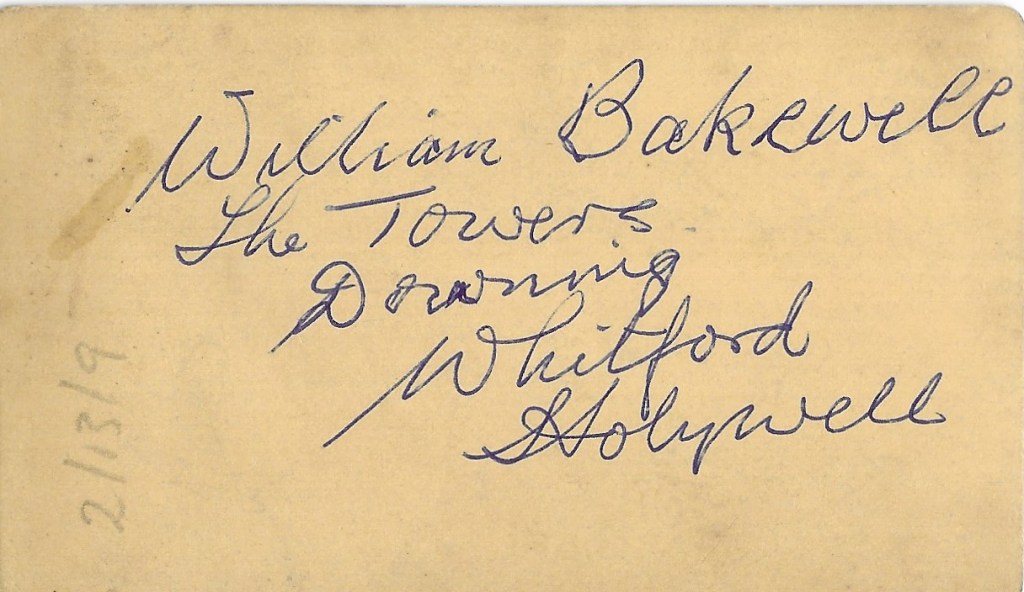 William Bakewell
The Towers
Downing
Whitford
Holywell
2/13/9